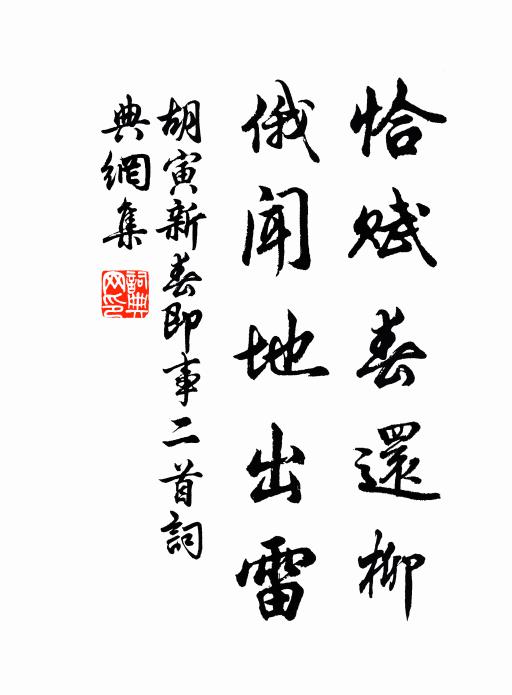 恰賦春還柳
俄聞地出雷
胡寅新春即事二首詞
典網集
詞典
網印